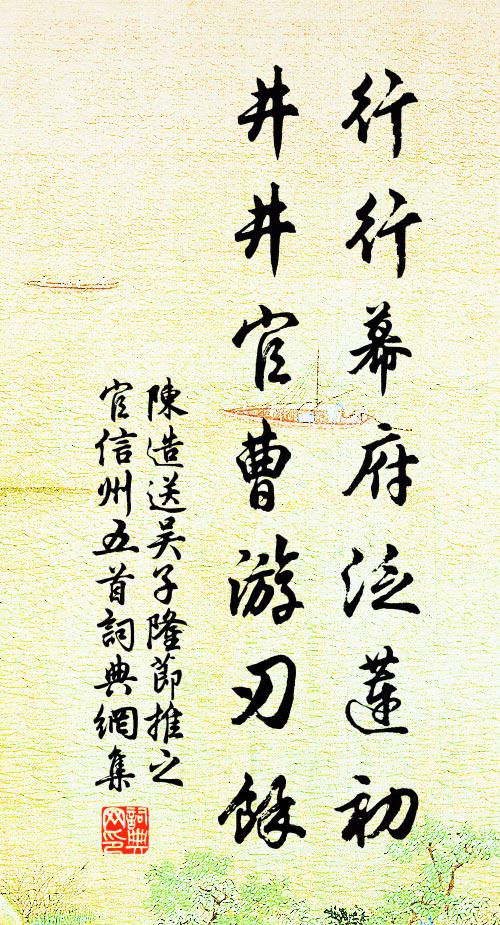 行行幕府泛蓮初
井井官曹游刃餘
陳造送吴子隆節推之
官信州五首詞典網集
詞典網印